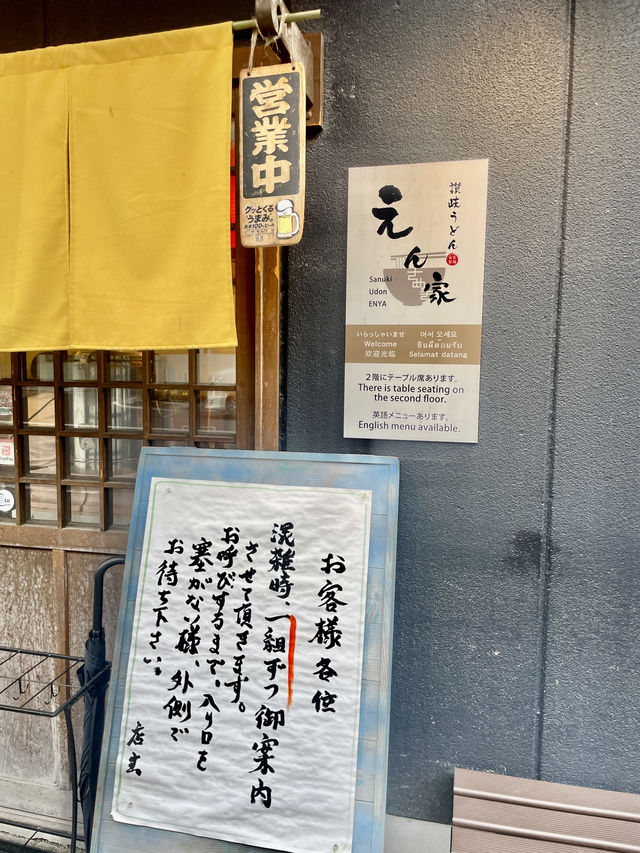 営業中
グッとくる
うまみ。
讃岐うどん
えん家
Sanuki
Udon
ENYA
いらっしゃいませ
어서 오세요
Welcome
ยินดีต้อนรับ
欢迎光临
Selamat datang
2階にテーブル席あります。
There is table seating on
the second floor.
英語メニューあります。
English menu available.
お客様各位
混雑時、一組ずつ御案内
させて頂きます。
お呼びするまで、入り口を
塞がない様、外側で
お待ち下さい。
店主